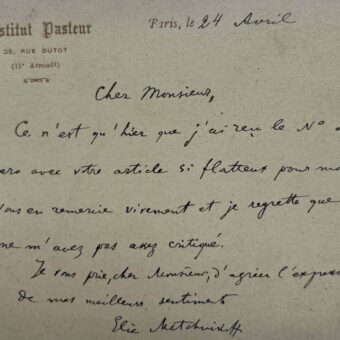 stitut Pasteur
25, RUE DUTOT
(15e Arrondt)
Paris, le 24 Avril
Cher Monsieur,
Ce n'est qu'hier que j'ai reçu le No d
aro avec votre article si flatteur pour mo
ous en remercie vivement et je regrette que
ne m'avez pas assez critiqué.
Je vous prie, cher Monsieur, d'agréer l'express
de mes meilleurs sentiments
Elie Metchnikoff